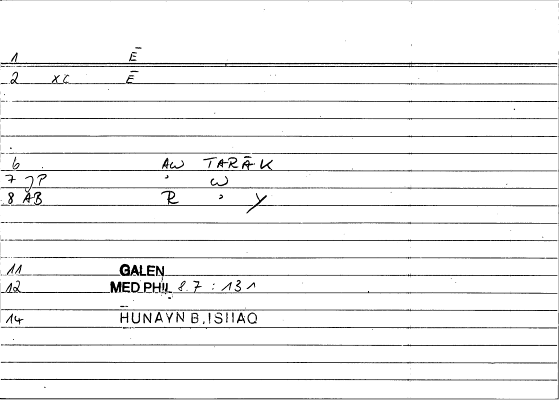 1 Ē
2 XC Ē
6 AW TARĀK
7 JP ' W
8 AB R ' Y
11 GALEN
12 MED PHIL 8.7 : 131
14 HUNAYN B.ISHAQ